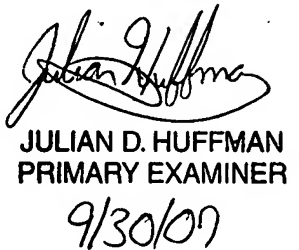 Julian D. Huffman
JULIAN D. HUFFMAN
PRIMARY EXAMINER
9/30/07